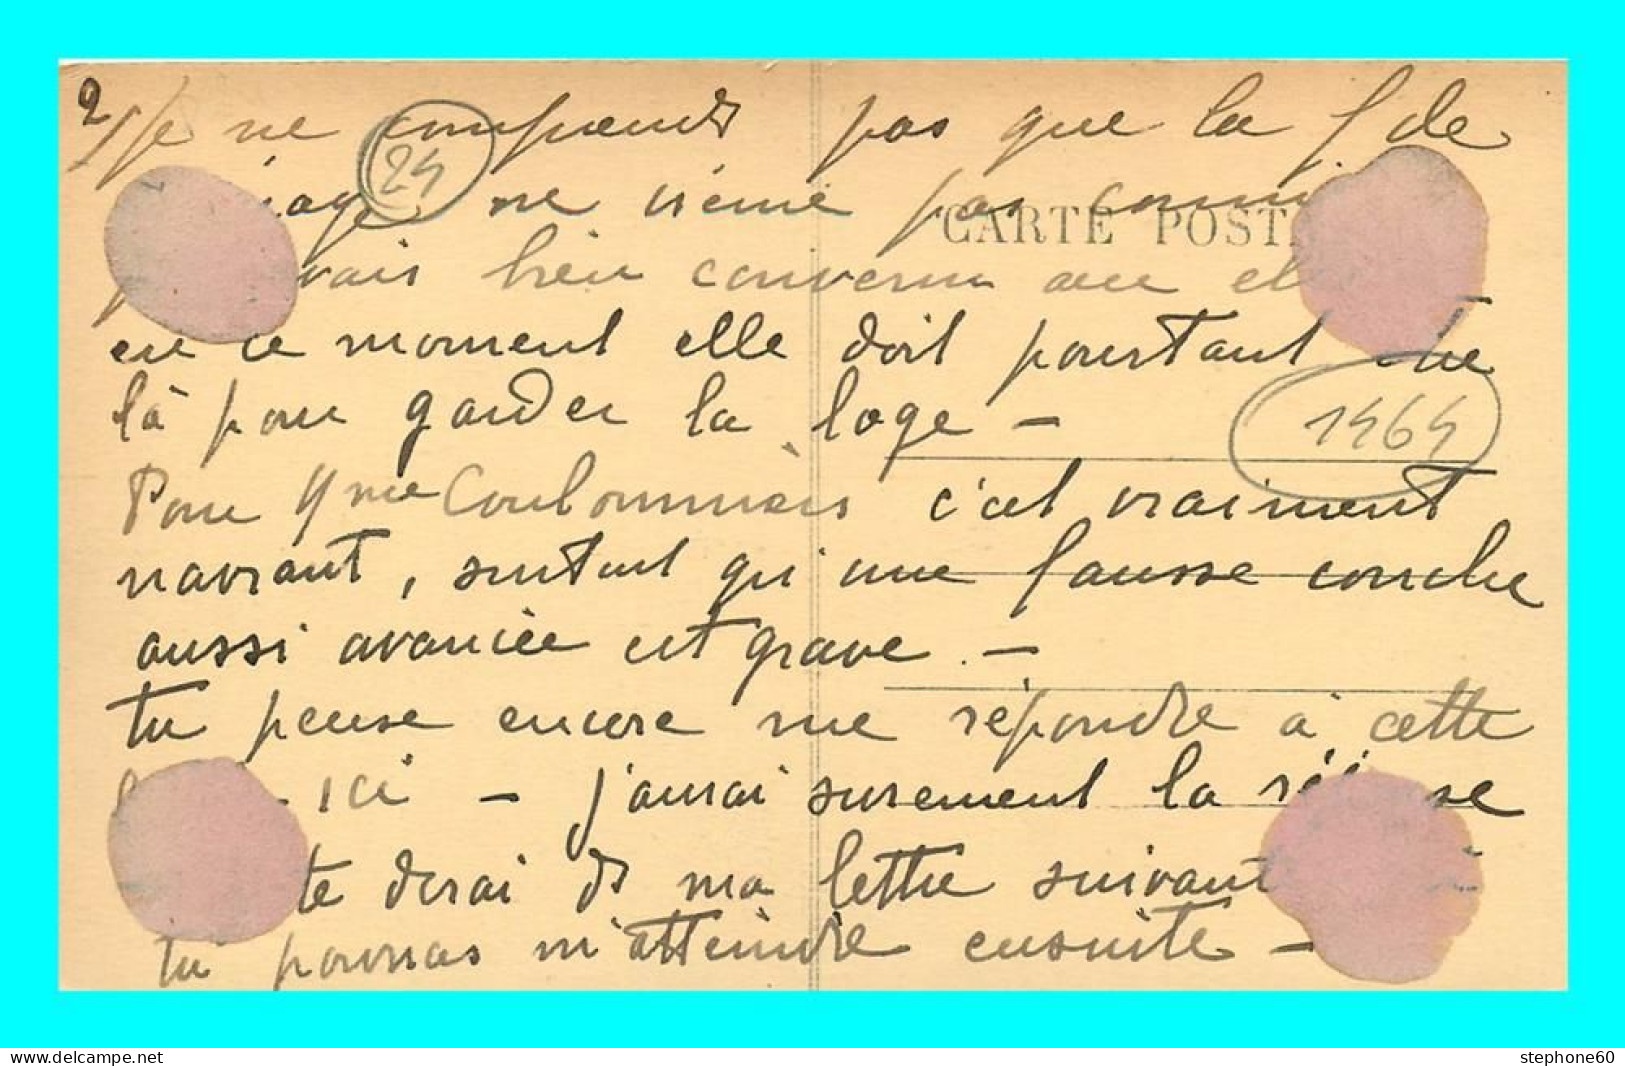 2/ Je ne comprends pas que la f de
24
ne vienne pas comme
CARTE POST
avais bien convenu avec el
en ce moment elle doit pourtant être
là pour garder la loge –
1464
Pour Mme Coulommiers c'est vraiment
navrant, surtout qu'une fausse couche
aussi avancée est grave. –
tu peux encore me répondre à cette
ici – j'aurai surement la réponse
te dirai ds ma lettre suivante
tu pourras m'atteindre ensuite –
stephone60